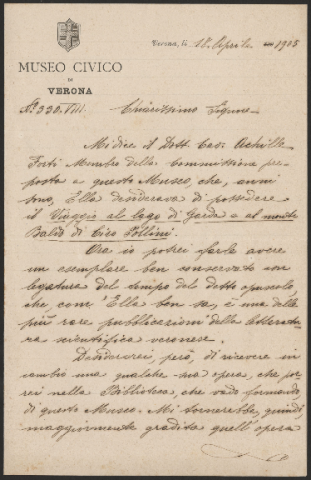 Verona, li 18 Aprile 1905
MUSEO CIVICO
DI
VERONA
N.º 330.VIII.
Chiarissimo Signore
Mi dice il Dott. Cav. Achille
Forti Membro della Commissione pre-
posta a questo Museo, che, anni
sono, Ella desiderava di possedere
il Viaggio al lago di Garda e al monte
Baldo di Ciro Pollini.
Ora io potrei farle avere
un esemplare ben conservato con
legatura del tempo del detto opuscolo,
che, com' Ella ben sa, è una delle
più rare pubblicazioni della letteratu-
ra scientifica veronese.
Desidererei, però, di ricevere in
cambio una qualche sua opera, che por-
rei nella Biblioteca, che vado formando,
di questo Museo. Mi tornerebbe, quindi,
maggiormente gradita quell' opera